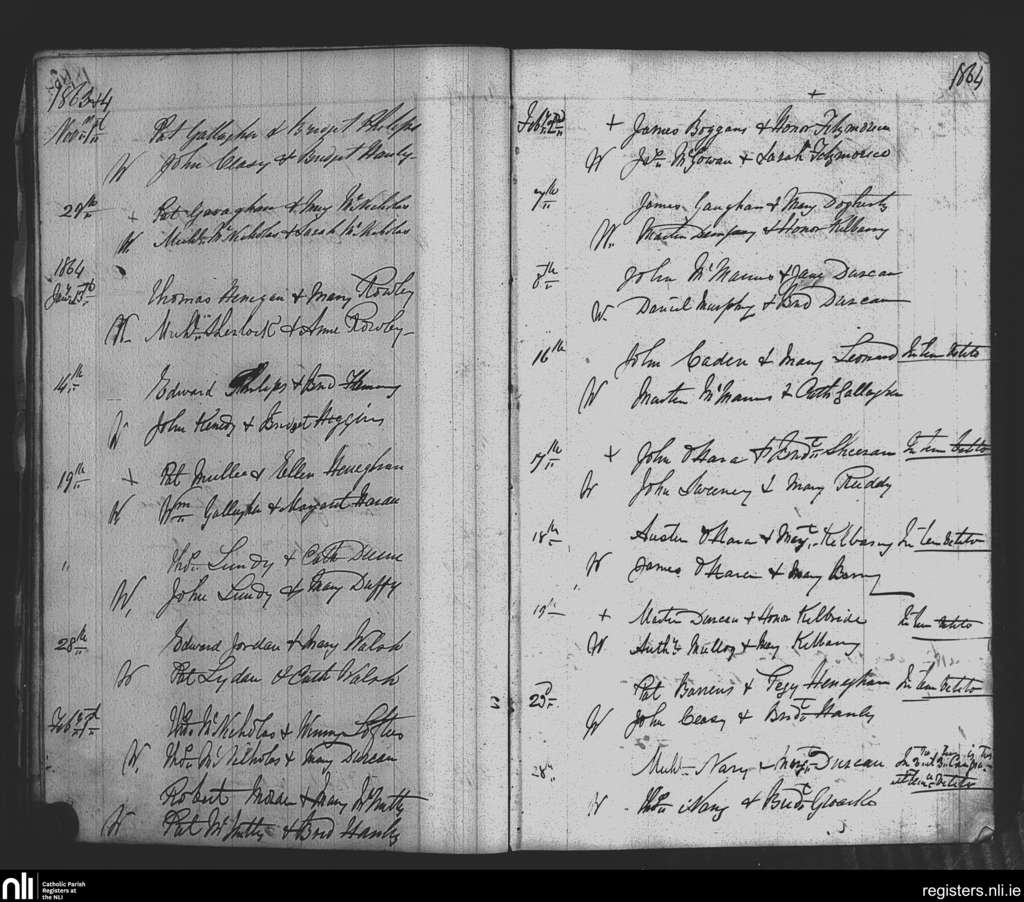 1863+4
Nov 1st Pat Gallagher & Bridget Philips
W John Cleasy & Bridget Hanly
29th + Pat Gavaghan & Mary McNicholas
W Michl McNicholas & Sarah McNicholas
1864
Jany 13th Thomas Henegan & Mary Rowley
W Michl Sherlock & Anne Rowley
14th Edward Philips & Brid Fleming
W John Kenedy & Bridget Higgins
19th + Pat Mullen & Ellen Heneghan
W Wm Gallagher & Margaret Horan
" Thos Lundy & Cath Dunne
W John Lundy & Mary Duffy
28th Edward Jordan & Mary Walsh
W Pat Lydan & Cath Walsh
Feby 1st McNicholas & Winny Loftus
W. Thos McNicholas & Mary Duncan
Robert & Mary McNulty
W Pat McNulty & Brid Hanly
1864
+
Feby 2nd + James Boggans & Honor Fitzmorris
W Jas McGowan & Sarah Fitzmorris
7th James Gaughan & Mary Dogherty
W. Martin Dempsey & Honor Kilbany
8th John McManus & Jane Duncan
W. Daniel Murphy & Brid Duncan
16th John Caden & Mary Leonard In Tem Vetito
W Martin McManus & Cath Gallagher
17th + John OHara & Bridt Sheeran In Tem Vetito
W John Sweeney & Mary Ruddy
18th Austin OHara & Mary Kilbany In Tem Vetito
W James OHara & Mary Barry
19th + Martin Duncan & Honor Kilbride In Tem Vetito
W Anthy Mulloy & Mary Kilbany
23d Pat Barrens & Pegy Heneghan In Tem Vetito
W John Cleasy & Bridt Hanly
28th Michl Nary & Mary Duncan In
et Tem Vetito
W Thos Nary & Bridt
nli Catholic Parish
Registers at
the NLI
registers.nli.ie